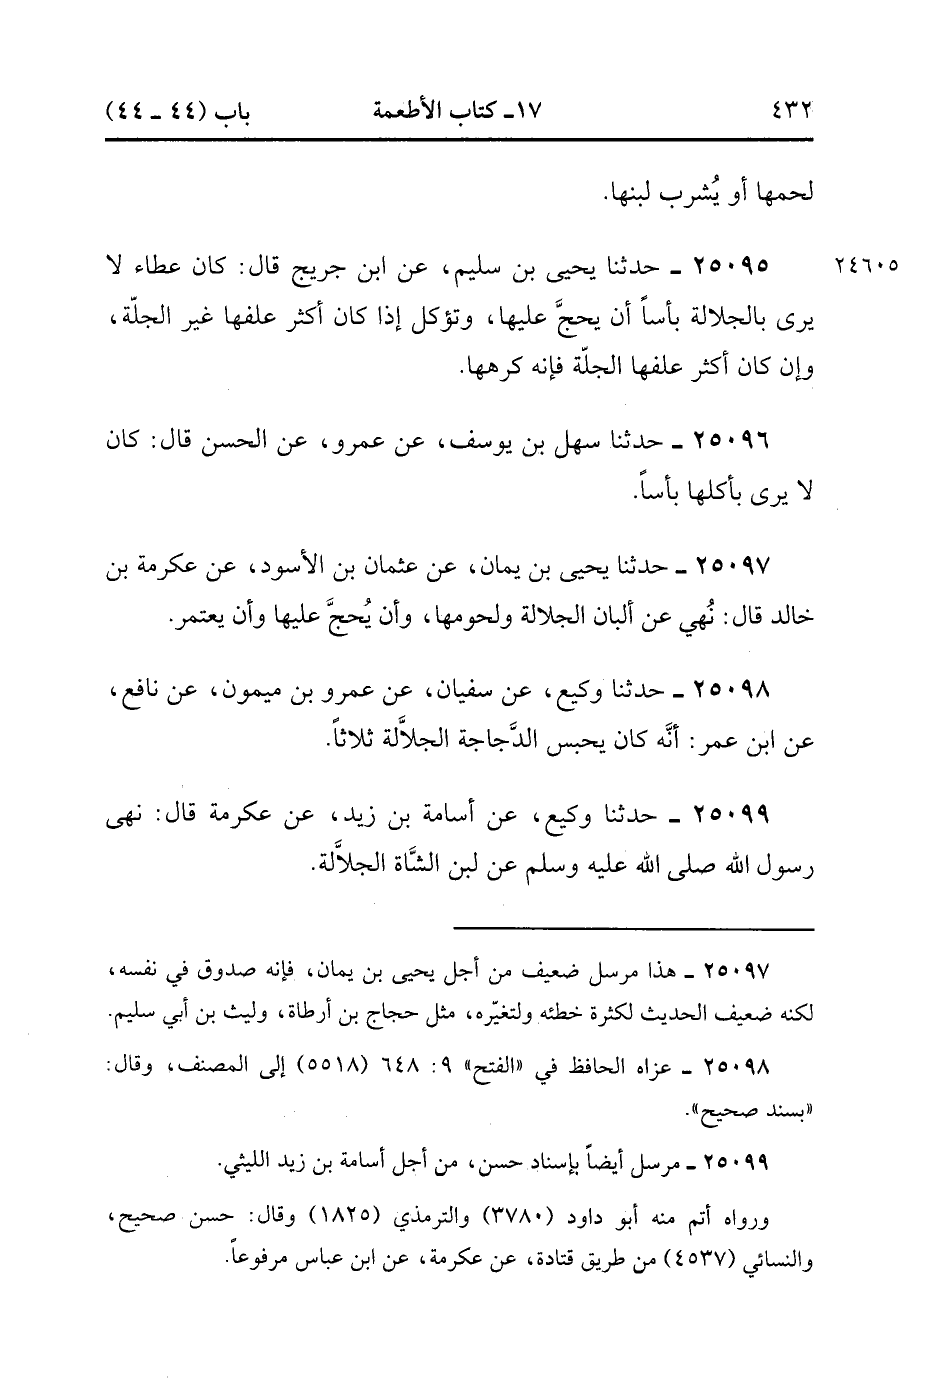 ٤٣٢ ١٧ـ كتاب الأطعمة باب (٤٤ ـ ٤٤)
لحمها أو يُشرب لبنها.
٢٤٦٠٥ ٢٥٠٩٥ ـ حدثنا يحيى بن سليم، عن ابن جريج قال: كان عطاء لا
يرى بالجلالة بأساً أن يحجَّ عليها، وتؤكل إذا كان أكثر علفها غير الجلّة،
وإن كان أكثر علفها الجلّة فإنه كرهها.
٢٥٠٩٦ ـ حدثنا سهل بن يوسف، عن عمرو، عن الحسن قال: كان
لا يرى بأكلها بأساً.
٢٥٠٩٧ ـ حدثنا يحيى بن يمان، عن عثمان بن الأسود، عن عكرمة بن
خالد قال: نُهي عن ألبان الجلالة ولحومها، وأن يُحجَّ عليها وأن يعتمر.
٢٥٠٩٨ ـ حدثنا وكيع، عن سفيان، عن عمرو بن ميمون، عن نافع،
عن ابن عمر: أنَّه كان يحبس الدَّجاجة الجلاَّلة ثلاثاً.
٢٥٠٩٩ ـ حدثنا وكيع، عن أسامة بن زيد، عن عكرمة قال: نهى
رسول الله صلى الله عليه وسلم عن لبن الشَّاة الجلاَّلة.
٢٥٠٩٧ ـ هذا مرسل ضعيف من أجل يحيى بن يمان، فإنه صدوق في نفسه،
لكنه ضعيف الحديث لكثرة خطئه ولتغيّره، مثل حجاج بن أرطاة، وليث بن أبي سليم.
٢٥٠٩٨ ـ عزاه الحافظ في «الفتح» ٩: ٦٤٨ (٥٥١٨) إلى المصنف، وقال:
«بسند صحيح».
٢٥٠٩٩ ـ مرسل أيضاً بإسناد حسن، من أجل أسامة بن زيد الليثي.
ورواه أتم منه أبو داود (٣٧٨٠) والترمذي (١٨٢٥) وقال: حسن صحيح،
والنسائي (٤٥٣٧) من طريق قتادة، عن عكرمة، عن ابن عباس مرفوعاً.